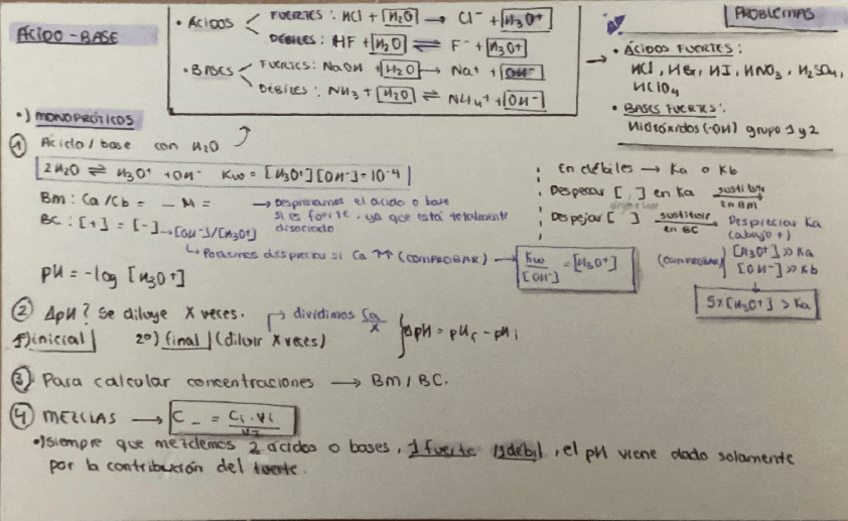 ÁCIDO-BASE
• ÁCIDOS < FUERTES: HCl + H2O → Cl⁻ + H3O⁺
DÉBILES: HF + H2O ⇌ F⁻ + H3O⁺
• BASES < FUERTES: NaOH + H2O → Na⁺ + OH⁻
DÉBILES: NH3 + H2O ⇌ NH4⁺ + OH⁻
PROBLEMAS
→ • ÁCIDOS FUERTES:
HCl, HBr, HI, HNO3, H2SO4,
HClO4
• BASES FUERTES:
Hidróxidos (-OH) grupo 1 y 2
•) MONOPRÓTICOS
① Ácido/base con H2O
2H2O ⇌ H3O⁺ + OH⁻ Kw = [H3O⁺][OH⁻] = 10⁻⁴
BM: Ca/Cb = — M = → Despreciamos el ácido o base
si es fuerte, ya que está totalmente
disociado
BC: [+] = [-] → [OH⁻]/[H3O⁺]
↳ Podemos despreciar si Ca ↑↑ (COMPROBAR) → Kw/[OH⁻] = [H3O⁺]
pH = -log [H3O⁺]
En débiles → Ka o Kb
Despejar [ , ] en Ka sustituir en BM
Despejar [ ] sustituir en BC Despreciar Ka
(abajo +)
(COMPROBAR) [H3O⁺] >> Ka
[OH⁻] >> Kb
5% [H3O⁺] > Ka
② ΔpH? Se diluye X veces. → dividimos Ca/X
1º) inicial 2º) final (diluir X veces) } ΔpH = pHf - pHi
③ Para calcular concentraciones → BM/BC.
④ MEZCLAS → C_ = Ci · Vi
•) Siempre que mezclemos 2 ácidos o bases, 1 fuerte y 1 débil, el pH viene dado solamente
por la contribución del fuerte.